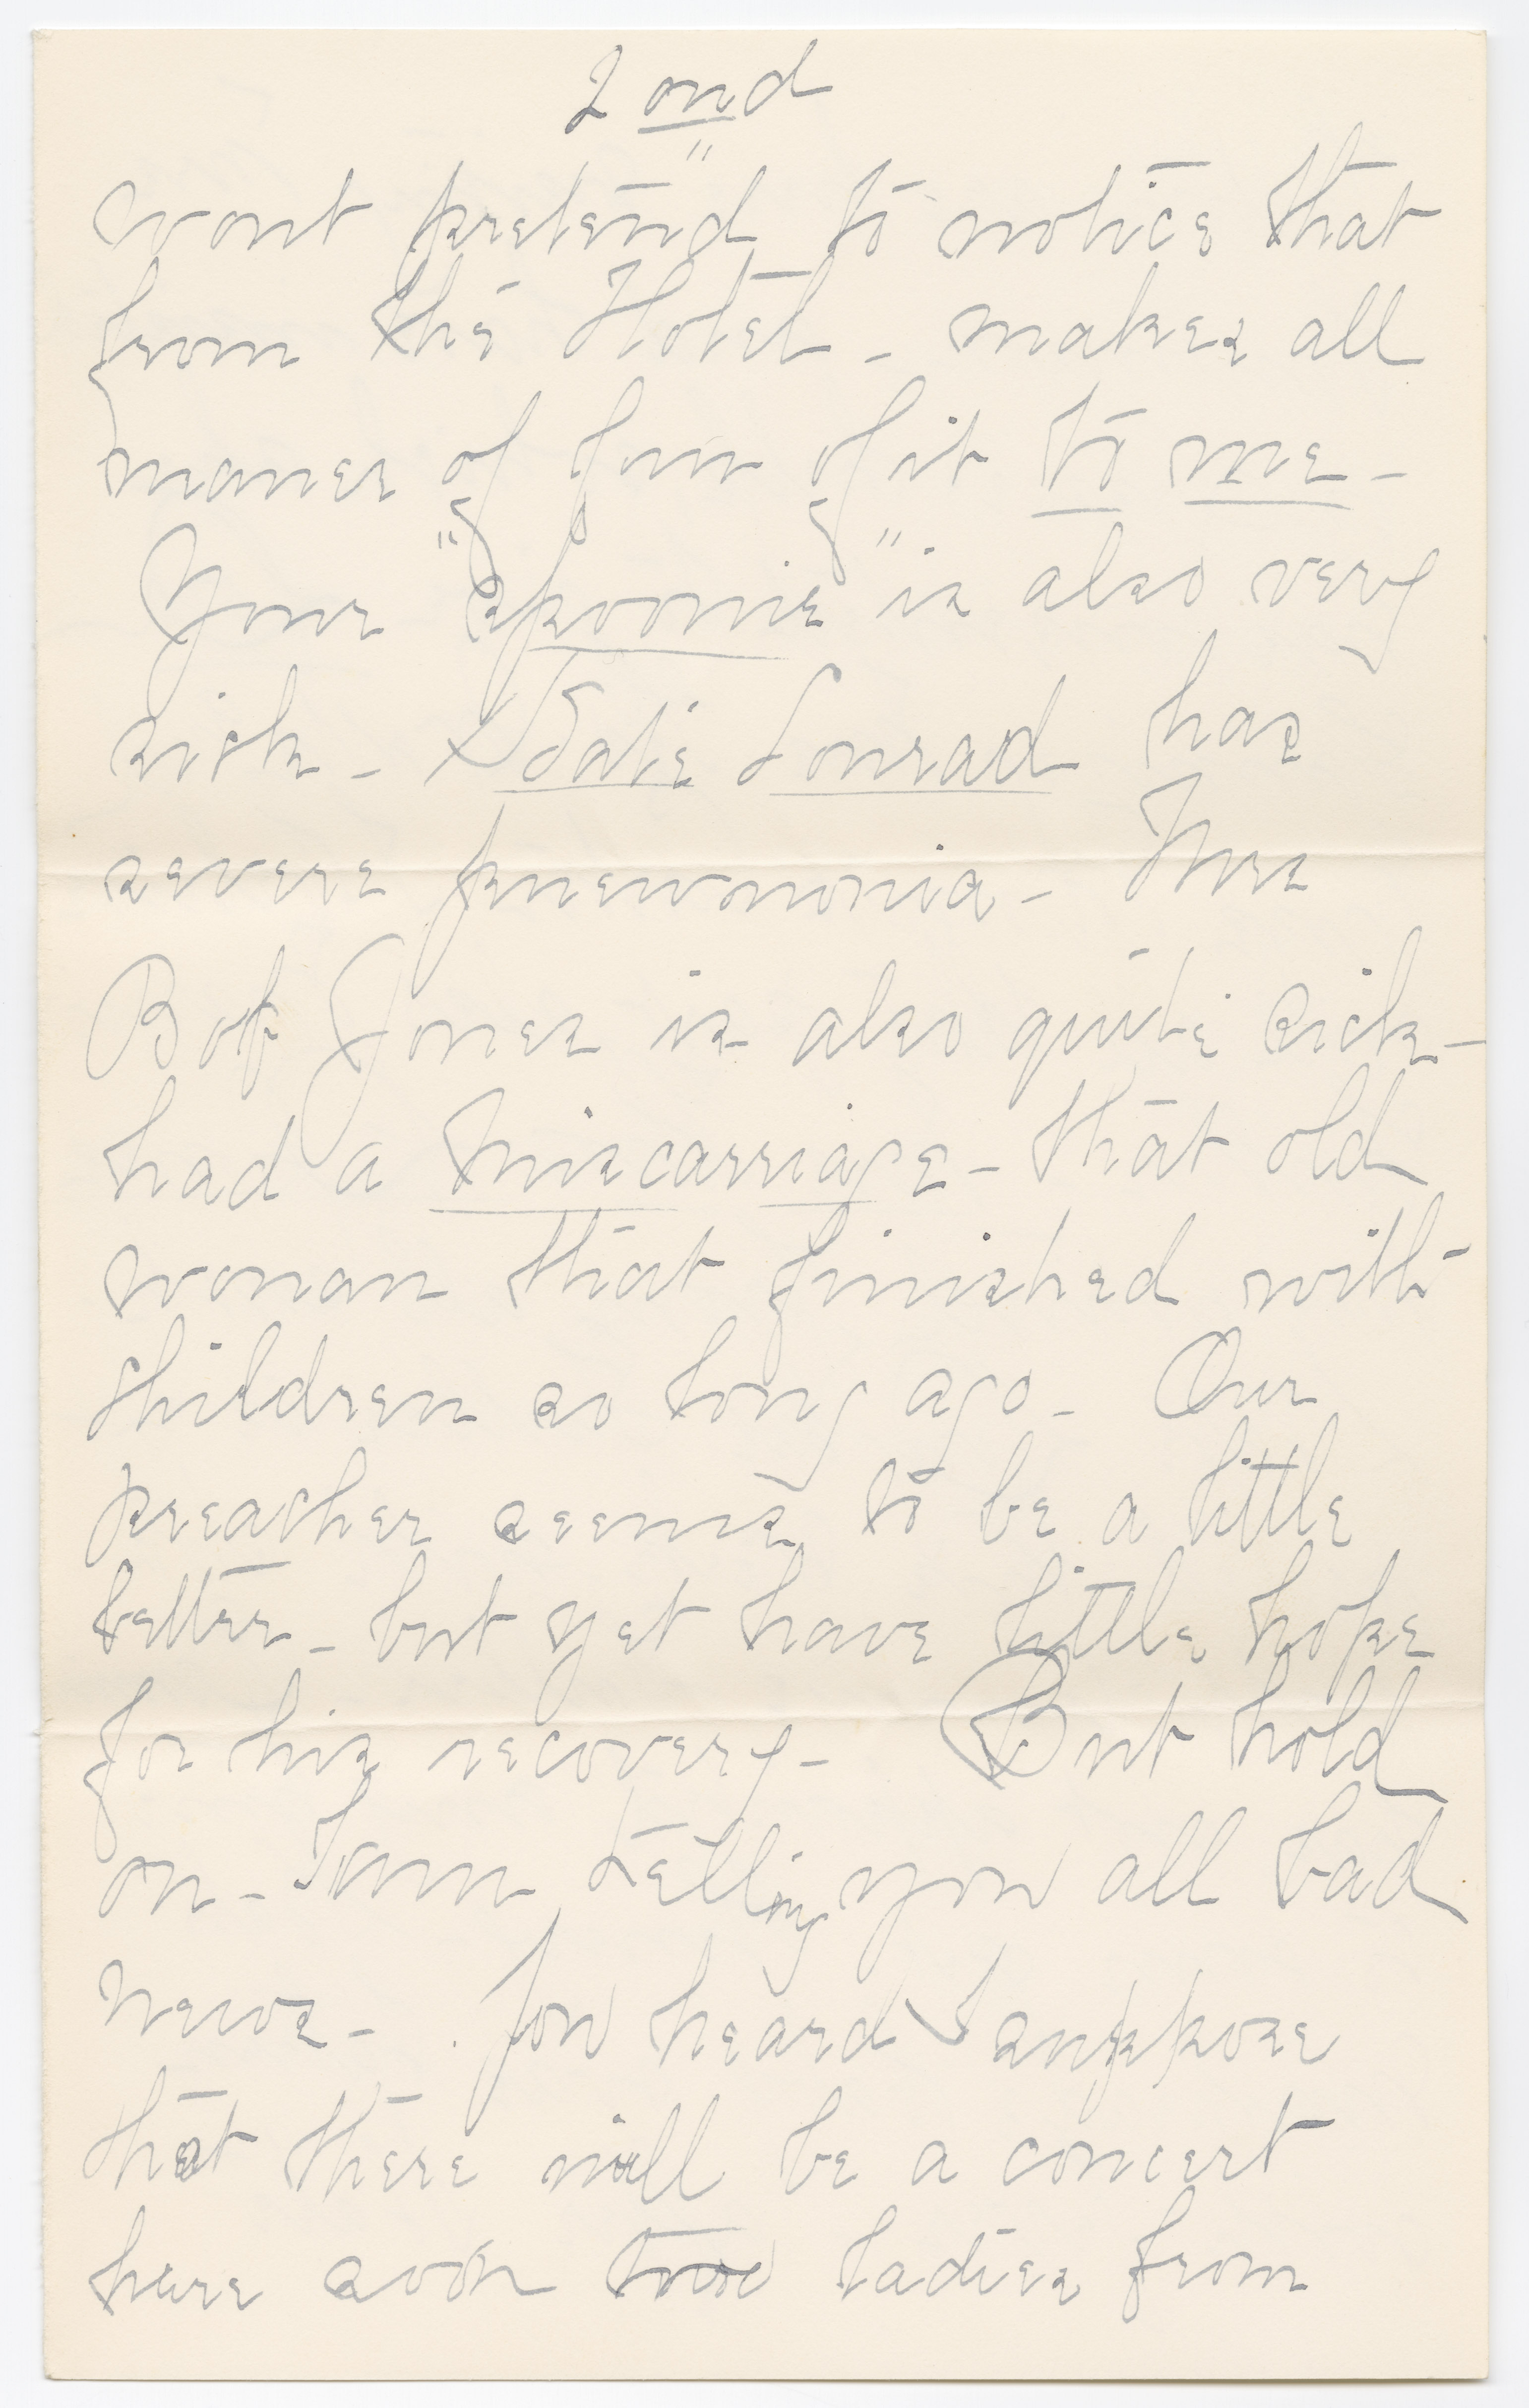 2 ond
"
wont pretend to notice that
from the Hotel - makes all
maner of fun of it to me -
Your "spoonie" is also very
sick - Kate Conrad has
severe pnewmonia - Mrs
Bob Jones is also quite sick -
had a miscarriage - that old
woman that finished with
children so long ago - Our
preacher seems to be a little
better - but yet have little hope
for his recovery - But hold
on - I am telling you all bad
news - You heard I suppose
that there will be a concert
here soon two ladies from